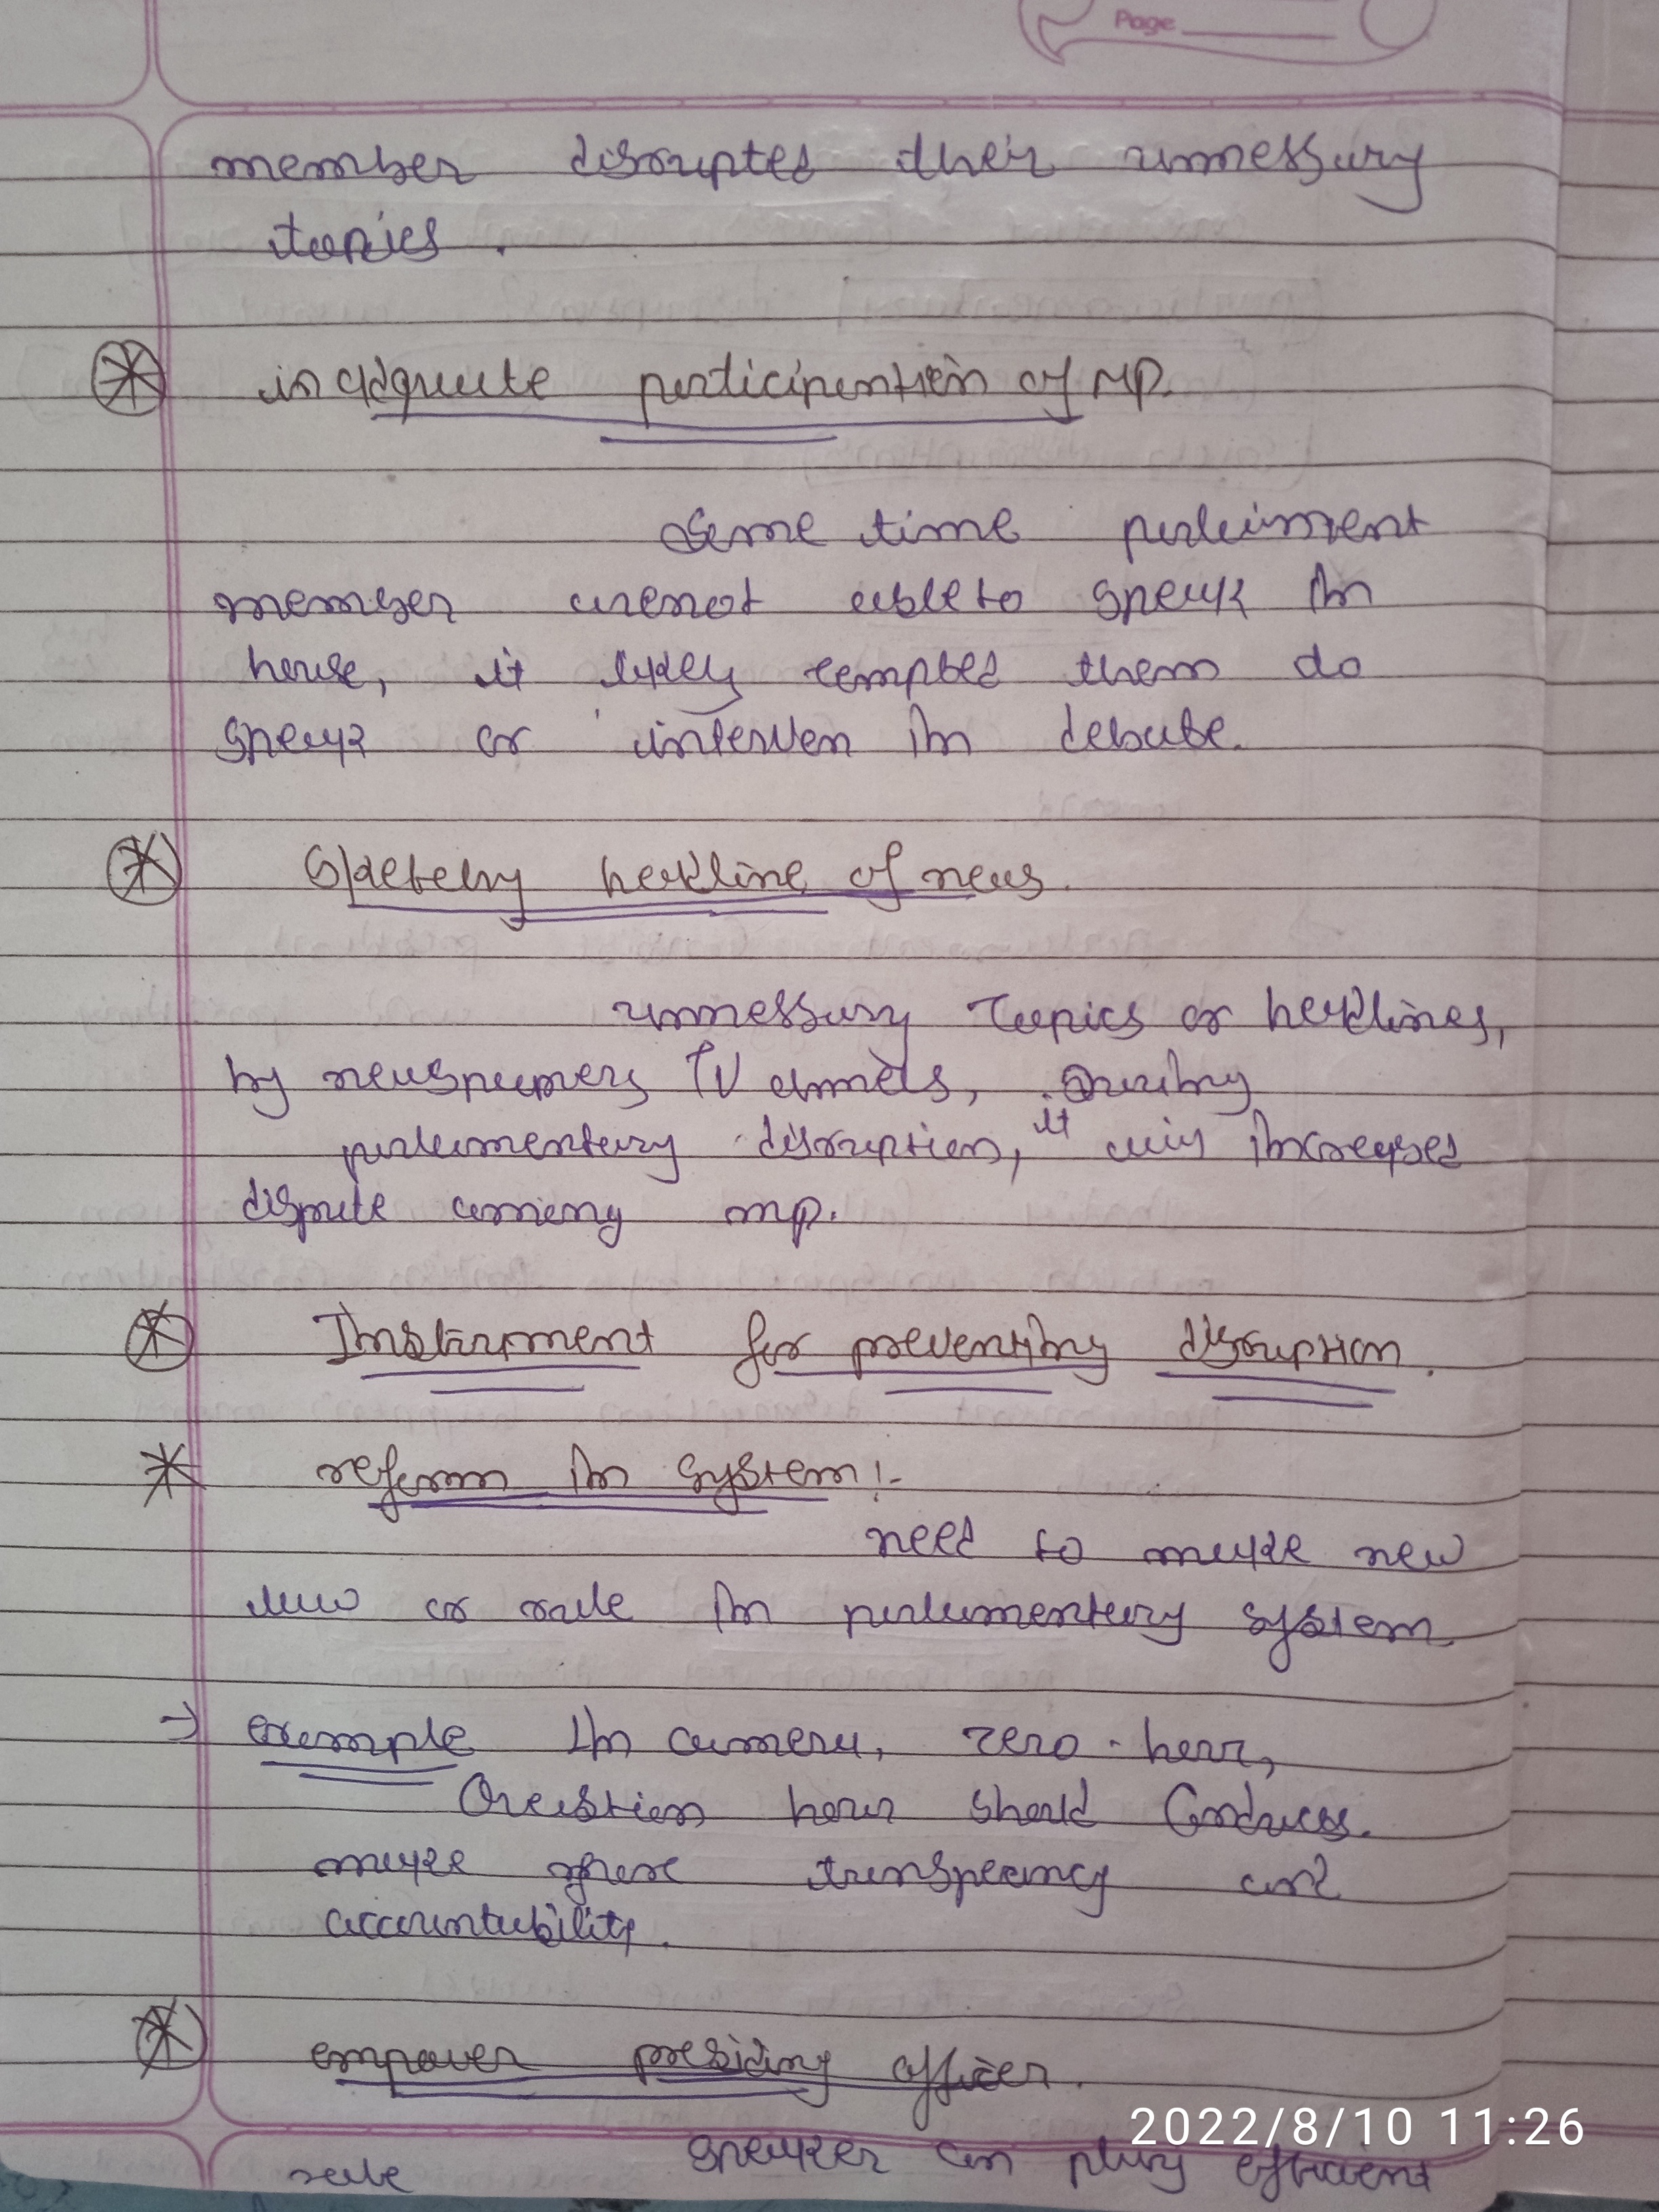 Page
member disrupted their unnessary
topics.
inadquate participation of MP.
Some time parleiment
member are not able to speak in
house, it likely tempted them do
speak or interven in debate.
headline of news.
unnessary Topics or headlines,
by newspapers TV channels, During
parliamentary disruption, it increased
dispute among mp.
Instrument for preventing disruption.
reform in system:-
need to make new
law or rule in parlamentary system
→ example In camera, zero-hour,
Question hour should Conduct.
make more transparency and
accountability.
empower presiding officer.
speaker can play efficient
role
2022/8/10 11:26